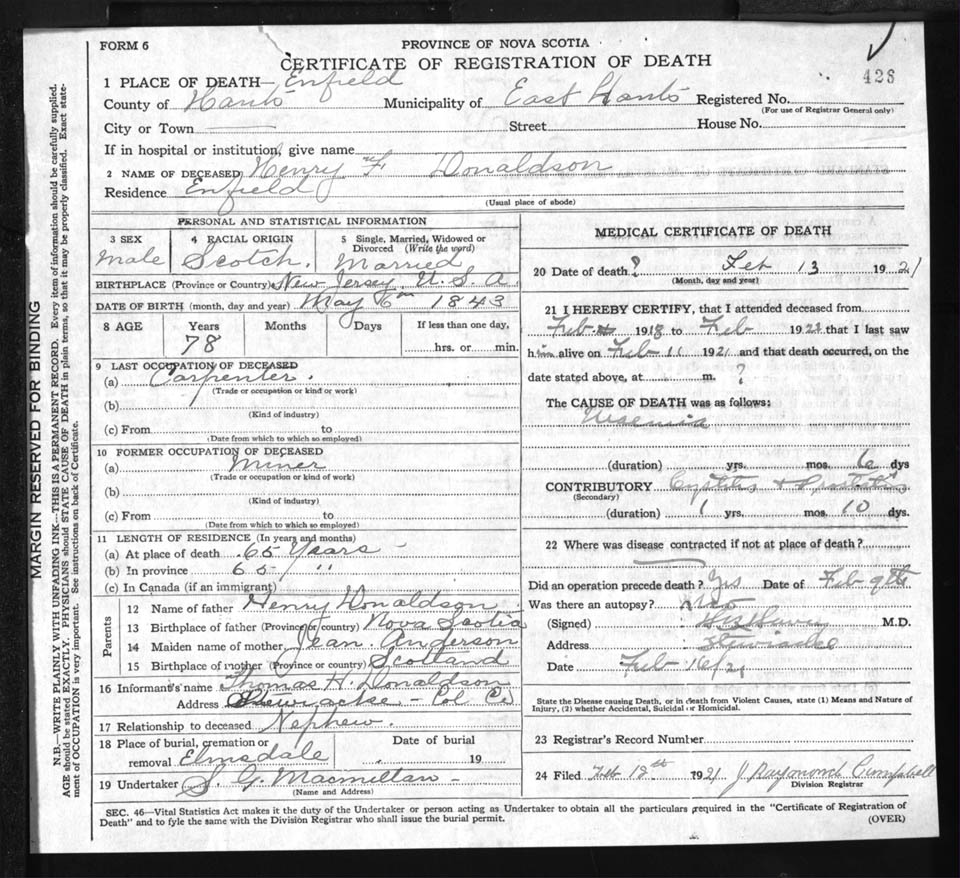 FORM 6
PROVINCE OF NOVA SCOTIA
428
CERTIFICATE OF REGISTRATION OF DEATH
1 PLACE OF DEATH— Enfield
County of Hants Municipality of East Hants Registered No.
(For use of Registrar General only)
City or Town Street House No.
If in hospital or institution, give name
2 NAME OF DECEASED Henry F Donaldson
Residence Enfield
(Usual place of abode)
PERSONAL AND STATISTICAL INFORMATION
3 SEX
Male
4 RACIAL ORIGIN
Scotch.
5 Single, Married, Widowed or
Divorced (Write the word)
Married
BIRTHPLACE (Province or Country) New Jersey, U. S. A
DATE OF BIRTH (month, day and year) May 6th 1843
8 AGE Years Months Days If less than one day,
78 hrs. or min.
9 LAST OCCUPATION OF DECEASED
(a) Carpenter.
(Trade or occupation or kind of work)
(b)
(Kind of industry)
(c) From to
(Date from which to which so employed)
10 FORMER OCCUPATION OF DECEASED
(a) Miner
(Trade or occupation or kind of work)
(b)
(Kind of industry)
(c) From to
(Date from which to which so employed)
11 LENGTH OF RESIDENCE (In years and months)
(a) At place of death 65 Years -
(b) In province 65 "
(c) In Canada (if an immigrant)
Parents
12 Name of father Henry Donaldson
13 Birthplace of father (Province or country) Nova Scotia
14 Maiden name of mother Jean Anderson
15 Birthplace of mother (Province or country) Scotland
16 Informant's name Thomas H. Donaldson
Address Stewiacke - Col Co
17 Relationship to deceased Nephew.
18 Place of burial, cremation or Date of burial
removal Elmsdale 19
19 Undertaker S. G. Macmillan -
(Name and Address)
MEDICAL CERTIFICATE OF DEATH
20 Date of death ? Feb 13 1921
(Month, day and year)
21 I HEREBY CERTIFY, that I attended deceased from
Feb 1918 to Feb 192 that I last saw
him alive on Feb 11 1921 and that death occurred, on the
date stated above, at m. ?
The CAUSE OF DEATH was as follows:
Uraemia
(duration) yrs. mos. 6 dys
CONTRIBUTORY Cystitis + Prostatitis
(Secondary)
(duration) 1 yrs. mos. 10 dys.
22 Where was disease contracted if not at place of death?
Did an operation precede death? Yes Date of Feb 9th
Was there an autopsy? No
(Signed) M.D.
Address Stewiacke
Date Feb 16/21
State the Disease causing Death, or in death from Violent Causes, state (1) Means and Nature of
Injury, (2) whether Accidental, Suicidal or Homicidal.
23 Registrar's Record Number
24 Filed Feb 1921 J Raymond Campbell
Division Registrar
SEC. 46—Vital Statistics Act makes it the duty of the Undertaker or person acting as Undertaker to obtain all the particulars required in the "Certificate of Registration of
Death" and to fyle the same with the Division Registrar who shall issue the burial permit.
(OVER)
MARGIN RESERVED FOR BINDING
N.B.—WRITE PLAINLY WITH UNFADING INK—THIS IS A PERMANENT RECORD. Every item of information should be carefully supplied.
AGE should be stated EXACTLY. PHYSICIANS should STATE CAUSE OF DEATH in plain terms, so that it may be properly classified. Exact state-
ment of OCCUPATION is very important. See instructions on back of Certificate.